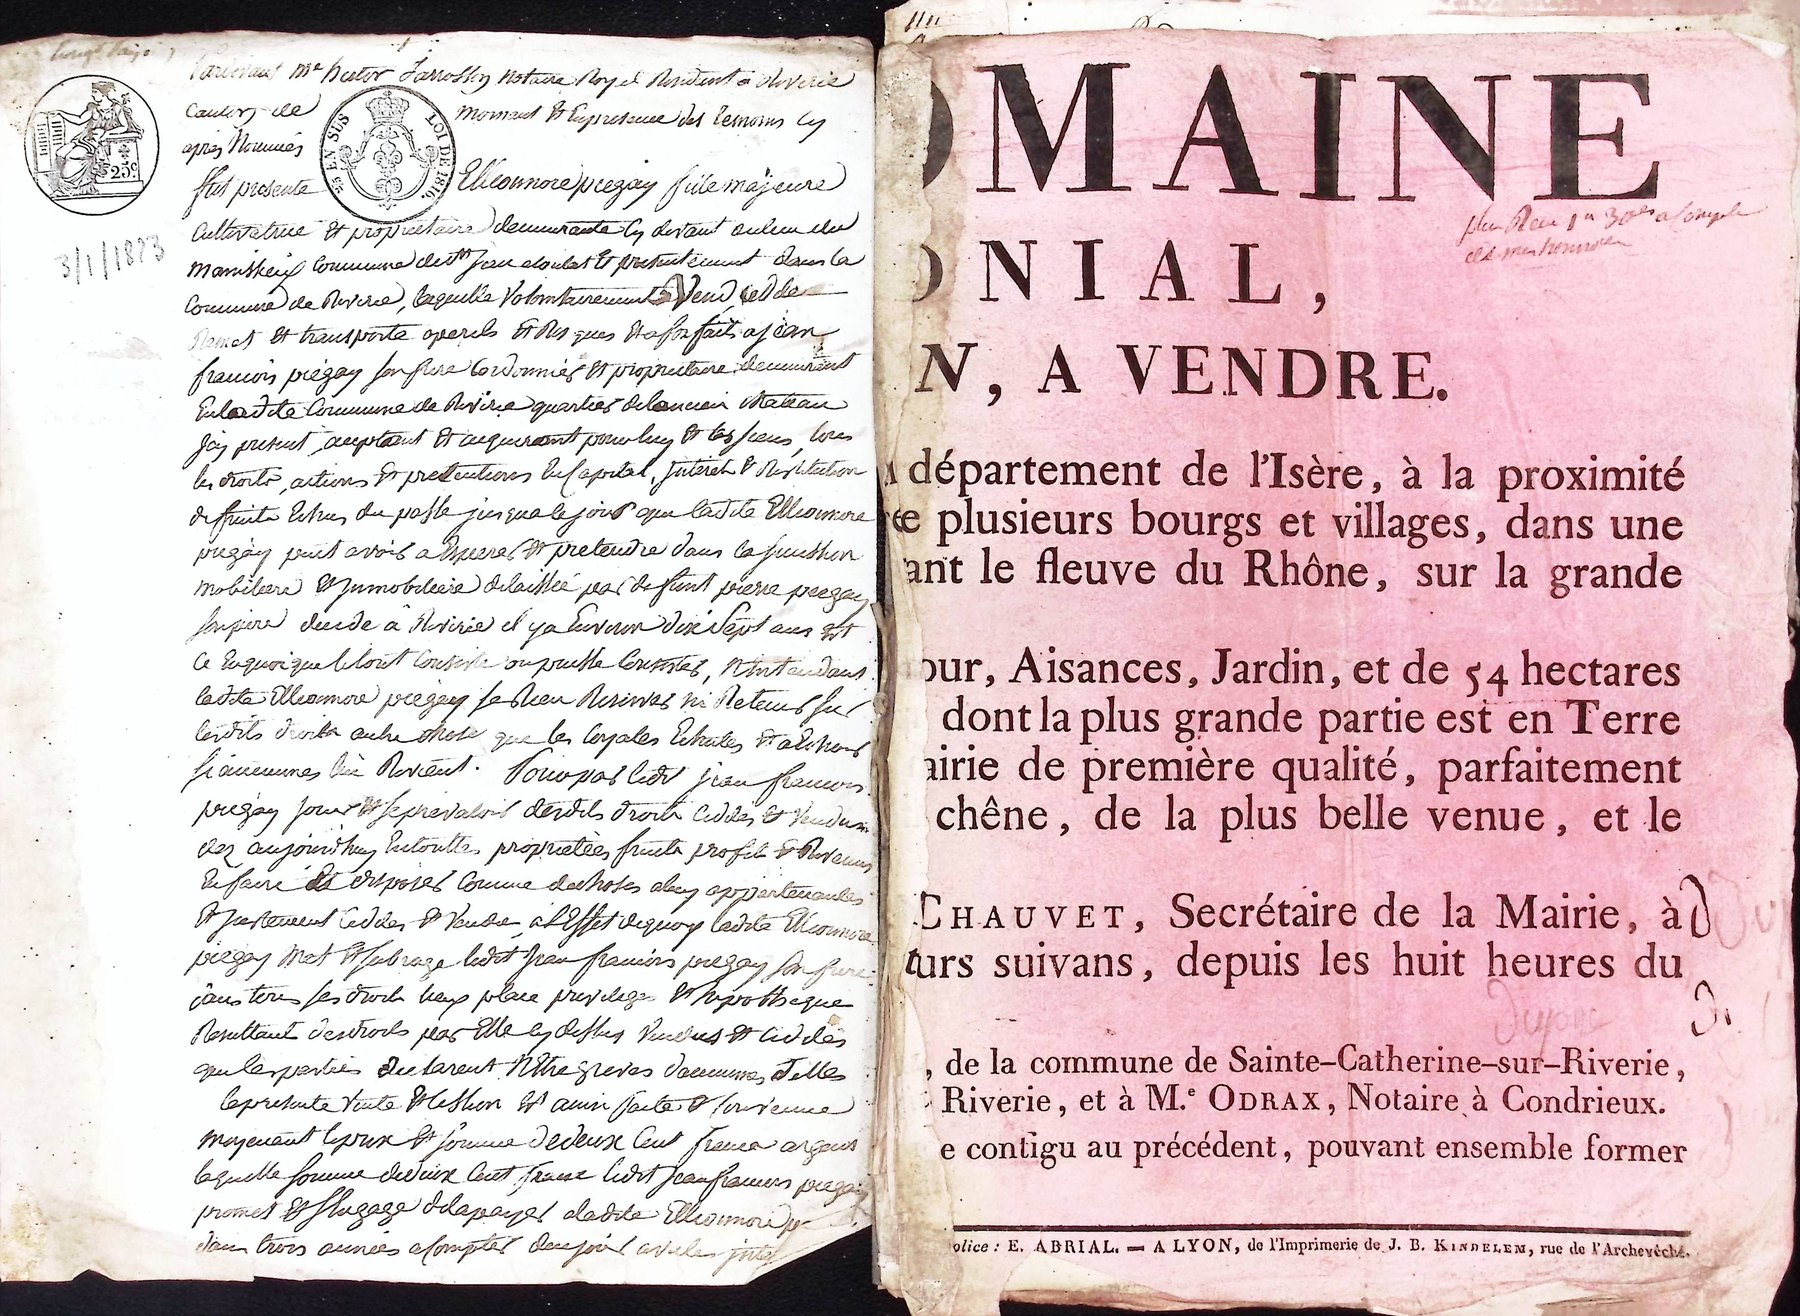 Pardevant Me hector Notaire Royal Resident a Riverie
canton de Mornant Et En presence des temoins Cy
après Nommés
25c
EN SUS LOI DE 1816.
fut presente Elleonnore piegay fille majeure
Cultivatrice Et propriétaire demeurante Cy devant au lieu du
Commune de St Jean Et presentement dans la
Commune de Riverie, laquelle Volontairement Vend, cedde
3/1/1823
Remet Et transporte a perils Et Risques Et a forfait a jean
francois piegay son frere Cordonnier Et proprietaire demeurant
En ladite Commune de Riverie quartier de lancien chateau
Icy present, acceptant Et acquerant pour luy Et les siens, tous
les droits, actions Et pretentions En Capital, Interet Et Restitution
de fruits Echus du passé jusqua le jour que ladite Elleonnore
piegay peut avoir a Esperer Et pretendre dans la succession
mobiliere Et Immobiliere delaissée par defunt pierre piegay
son pere decede à Riverie il y a Environ dix Sept ans Et
Ce En quoi que le tout Consiste ou puisse Consister, N'Entendant
ladite Elleonnore piegay se Rien Reserver ni Retenir sur
lesdits droits autre chose que les loyales Echutes Et a Echoir
si aucunes lui Revient. Pour par ledit jean francois
piegay jouir Et se prevaloir desdits droits Ceddés Et Vendus
dez aujourdhuy En touttes proprietées fruits profits Et Revenus
En faire Et disposer Comme de choses a luy appartenantes
Et justement Ceddés Et Vendus, a l'Effet de quoy ladite Elleonnore
piegay Met Et subroge ledit Jean francois piegay son frere
dans tous ses droits lieux place privileges Et hipotheque
Resultant des droits par Elle cy dessus Vendus Et Ceddés
que les parties declarent N'Etre greves d'aucunes dettes
la presente Vente Et Cession Est ainsi faite Et Convenue
moyenant le prix Et Somme de deux Cent francs argent
laquelle somme de deux Cent francs ledit Jean francois piegay
promet Et s'Engage de la payer a ladite Elleonnore
dans trois années a Compter de ce jour avec les
OMAINE
ONIAL,
N, A VENDRE.
département de l'Isère, à la proximité
plusieurs bourgs et villages, dans une
ant le fleuve du Rhône, sur la grande
our, Aisances, Jardin, et de 54 hectares
dont la plus grande partie est en Terre
airie de première qualité, parfaitement
chêne, de la plus belle venue, et le
CHAUVET, Secrétaire de la Mairie, à
urs suivans, depuis les huit heures du
, de la commune de Sainte-Catherine-sur-Riverie,
Riverie, et à M.e ODRAX, Notaire à Condrieux.
e contigu au précédent, pouvant ensemble former
olice : E. ABRIAL. — A LYON, de l'Imprimerie de J. B. KINDELEM, rue de l'Archevêché.